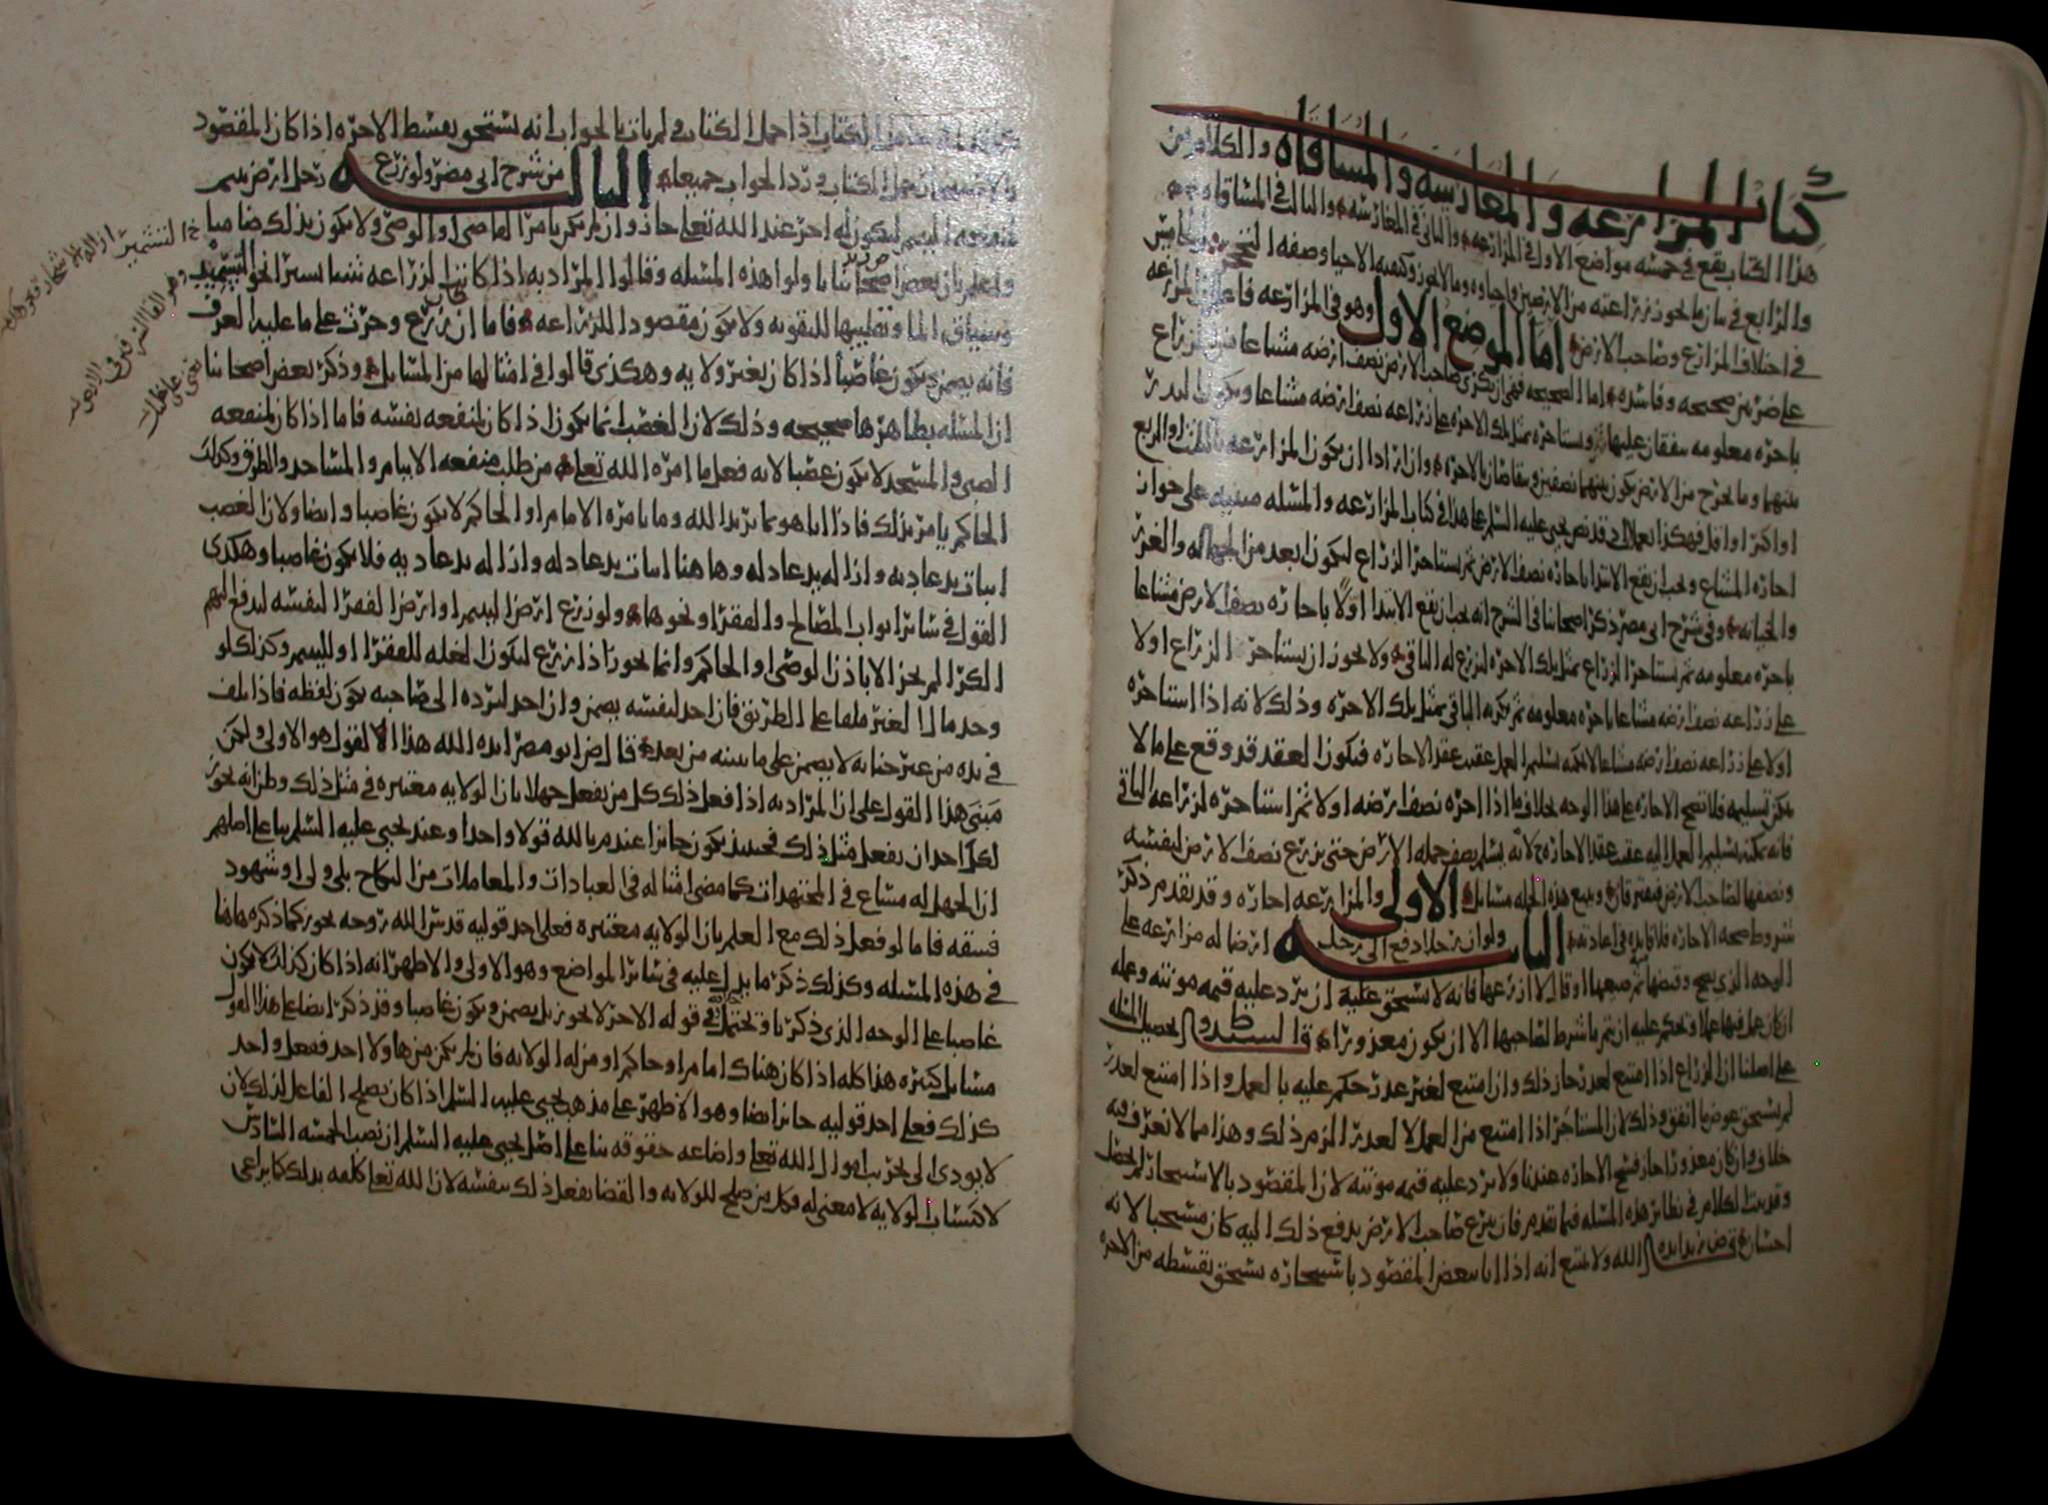 كتاب المزارعه والمغارسه والمساقاه والكلام من
هذا الكتاب يقع في خمسه مواضع الاول في المزارعه والثاني في المغارسه والثالث في المساقاه
والرابع في بيان ما يجوز زراعته من الارضين واحياوه وما لا يجوز وكيفيه الاحيا وصفه التحجر والخامس
في اختلاف المزارع وصاحب الارض اما الموضع الاول وهو في المزارعه فاعلم ان المزارعه
على ضربين صحيحه وفاسده اما الصحيحه فهي ان يكري صاحب الارض نصف ارضه مشاعا من الزراع
باجره معلومه يتفقان عليها ثم يستاجره بمثل تلك الاجره على زراعه نصف ارضه مشاعا ويكون البذر
بينهما وما يخرج من الارض يكون بينهما نصفين ويتقاصان بالاجره وان ارادا ان يكون المزارعه بالثلث او الربع
او اكثر او اقل فهكذا يعملان قد نص يحيى عليه السلم على هذا في كتاب المزارعه والمسله مبنيه على جواز
اجاره المشاع ويجب ان يقع الابتدا باجاره نصف الارض ثم يستاجر الزراع ليكون ابعد من الجهاله والغرر
والخيانه وفي شرح ابي مضر ذكر اصحابنا في الشرح انه يجب ان يقع الابتدا اولا باجاره نصف الارض مشاعا
باجره معلومه ثم يستاجر الزراع بمثل تلك الاجره ليزرع له الباقي ولا يجوز ان يستاجر الزراع اولا
على زراعه نصف ارضه مشاعا باجره معلومه ثم يكريه الباقي بمثل تلك الاجره وذلك لانه اذا استاجره
اولا على زراعه نصف ارضه مشاعا لا يمكنه تسليم العمل عقيب عقد الاجاره فيكون العقد قد وقع على ما لا
يمكن تسليمه فلا تصح الاجاره على هذا الوجه بخلاف ما اذا اجره نصف ارضه اولا ثم استاجره لزراعه الباقي
فانه يمكنه تسليم العمل اليه عقيب عقد الاجاره لانه يتسلم نصف جمله الارض حتى يزرع نصف الارض لنفسه
ونصفها لصاحب الارض فيفترقان ويتبع هذه الجمله مسايل الاولى والمزارعه اجاره وقد تقدم ذكر
شروط صحه الاجاره فلا فايده في اعادته الثانيه ولو ان رجلا دفع الى رجل ارضا له مزارعه على
الوجه الذي يصح وقبضها ثم ضيعها او قال لا ازرعها فانه لا يستحق عليه ان يرد عليه قيمه مونته وعمله
ان كان عمل فيها عملا ويحكم عليه ان يتم ما شرط لصاحبها الا ان يكون معذورا قال السيد ط وتحصيل المسله
على اصلنا ان الزراع اذا امتنع لعذر جاز ذلك وان امتنع لغير عذر حكم عليه بالعمل واذا امتنع لعذر
لم يستحق عوض ما انفق وذلك لان المستاجر اذا امتنع من العمل لا لعذر الزم ذلك وهذا مما لا نعرف فيه
خلافا وان كان معذورا جاز فسخ الاجاره عندنا ولا يرد عليه قيمه مونته لان المقصود بالاستيجار لم يحصل
وقد بينا الكلام في نظاير هذه المسله فيما تقدم فان تبرع صاحب الارض بدفع ذلك اليه كان مستحبا لانه
احسان قال ض زيد ايده الله ولا يمتنع انه اذا اتى ببعض المقصود باستيجاره يستحق بقسطه من الاجره
الكتاب اذا حمل الكتاب ولم يات بالجواب انه يستحق بقسط الاجره اذا كان المقصود
حمل الكتاب ورد الجواب جميعا الثالثه من شرح ابي مضر ولو زرع رجل ارض يتيم
لمنفعه اليتيم ليكون له اجر عند الله تعالى جاز وان لم يكن بامر القاضي او الوصي ولا يكون بذلك ضامنا
واعلم بان بعض اصحابنا تاولوا هذه المسله وقالوا المراد به اذا كانت الزراعه شيئا يسيرا نحو التشميذ
وسياق الما وتطييبها للتقويه ولا يكون مقصود الزراعه فاما ان يزرع وحرث على ما عليه العرف
فانه يضمن ويكون غاصبا اذا كان بغير ولايه وهكذى قالوا في امثالها من المسايل وذكر بعض اصحابنا
ان المسله بظاهرها صحيحه وذلك لان الغصب انما يكون اذا كان لمنفعه نفسه فاما اذا كان لمنفعه
الصبي والمسجد لا يكون غصبا لانه فعل ما امره الله تعالى من طلب منفعه الايتام والمساجد والطرق وكذلك
الحاكم يامر بذلك فاذا اتى هو بما يريد الله وما يامره الامام او الحاكم لا يكون غاصبا وايضا ولان الغصب
اثبات يد عاديه وازاله يد عادله وهاهنا اثبات يد عادله وازاله يد عاديه فلا يكون غاصبا وهكذى
القول في ساير ابواب المصالح والفقرا ونحوها ولو زرع ارض اليتيم او ارض الفقرا لنفسه ليدفع اليهم
الكرا لم يجز الا باذن الوصي او الحاكم وانما يجوز اذا زرع ليكون الغله للفقرا او لليتيم وكذلك لو
وجد مال الغير ملقا على الطريق فان اخذ لنفسه يضمن وان اخذ ليرده الى صاحبه يكون لقطه فاذا تلف
في يده من غير جنايه لا يضمن على ما نبينه من بعد قال ض ابو مضر ايده الله هذا القول هو الاولى ولكن
مبنى هذا القول على ان المراد به اذا فعل ذلك كل من يفعل جهلا بان الولايه معتبره في مثل ذلك وظن انه يجوز
لكل احد ان يفعل مثل ذلك فحينيذ يكون جايزا عند م بالله قولا واحدا وعند يحيى عليه السلم بنا على اصلهم
ان الجهل له مساغ في المجتهدات كما مضى امثاله في العبادات والمعاملات من النكاح بلى ولى او شهود
فسقه فاما لو فعل ذلك مع العلم بان الولايه معتبره فعلى احد قوليه قدس الله روحه يجوز كما ذكره هاهنا
في هذه المسله وكذلك ذكر ما يدل عليه في ساير المواضع وهو الاولى والاظهر انه اذا كان كذلك لا يكون
غاصبا على الوجه الذي ذكرنا ويحتمل في قوله الاخر لا يجوز بل يضمن ويكون غاصبا وقد ذكر ايضا على هذا القول
مسايل كثيره هذا كله اذا كان هناك امام او حاكم او من له الولايه فان لم يكن من هاولا احد ففعل واحد
كذلك فعلى احد قوليه جايز ايضا وهو الاظهر على مذهب يحيى عليه السلم اذا كان يصلح الفاعل لذلك لان
لا يودي الى تخريب اموال الله تعالى واضاعه حقوقه بنا على اصل يحيى عليه السلم ان نصب الخمسه السادس
لاكتساب الولايه لا معنى له وكل من صلح للولايه والقضا يفعل ذلك بنفسه لان الله تعالى كلفه بذلك كما يراعى